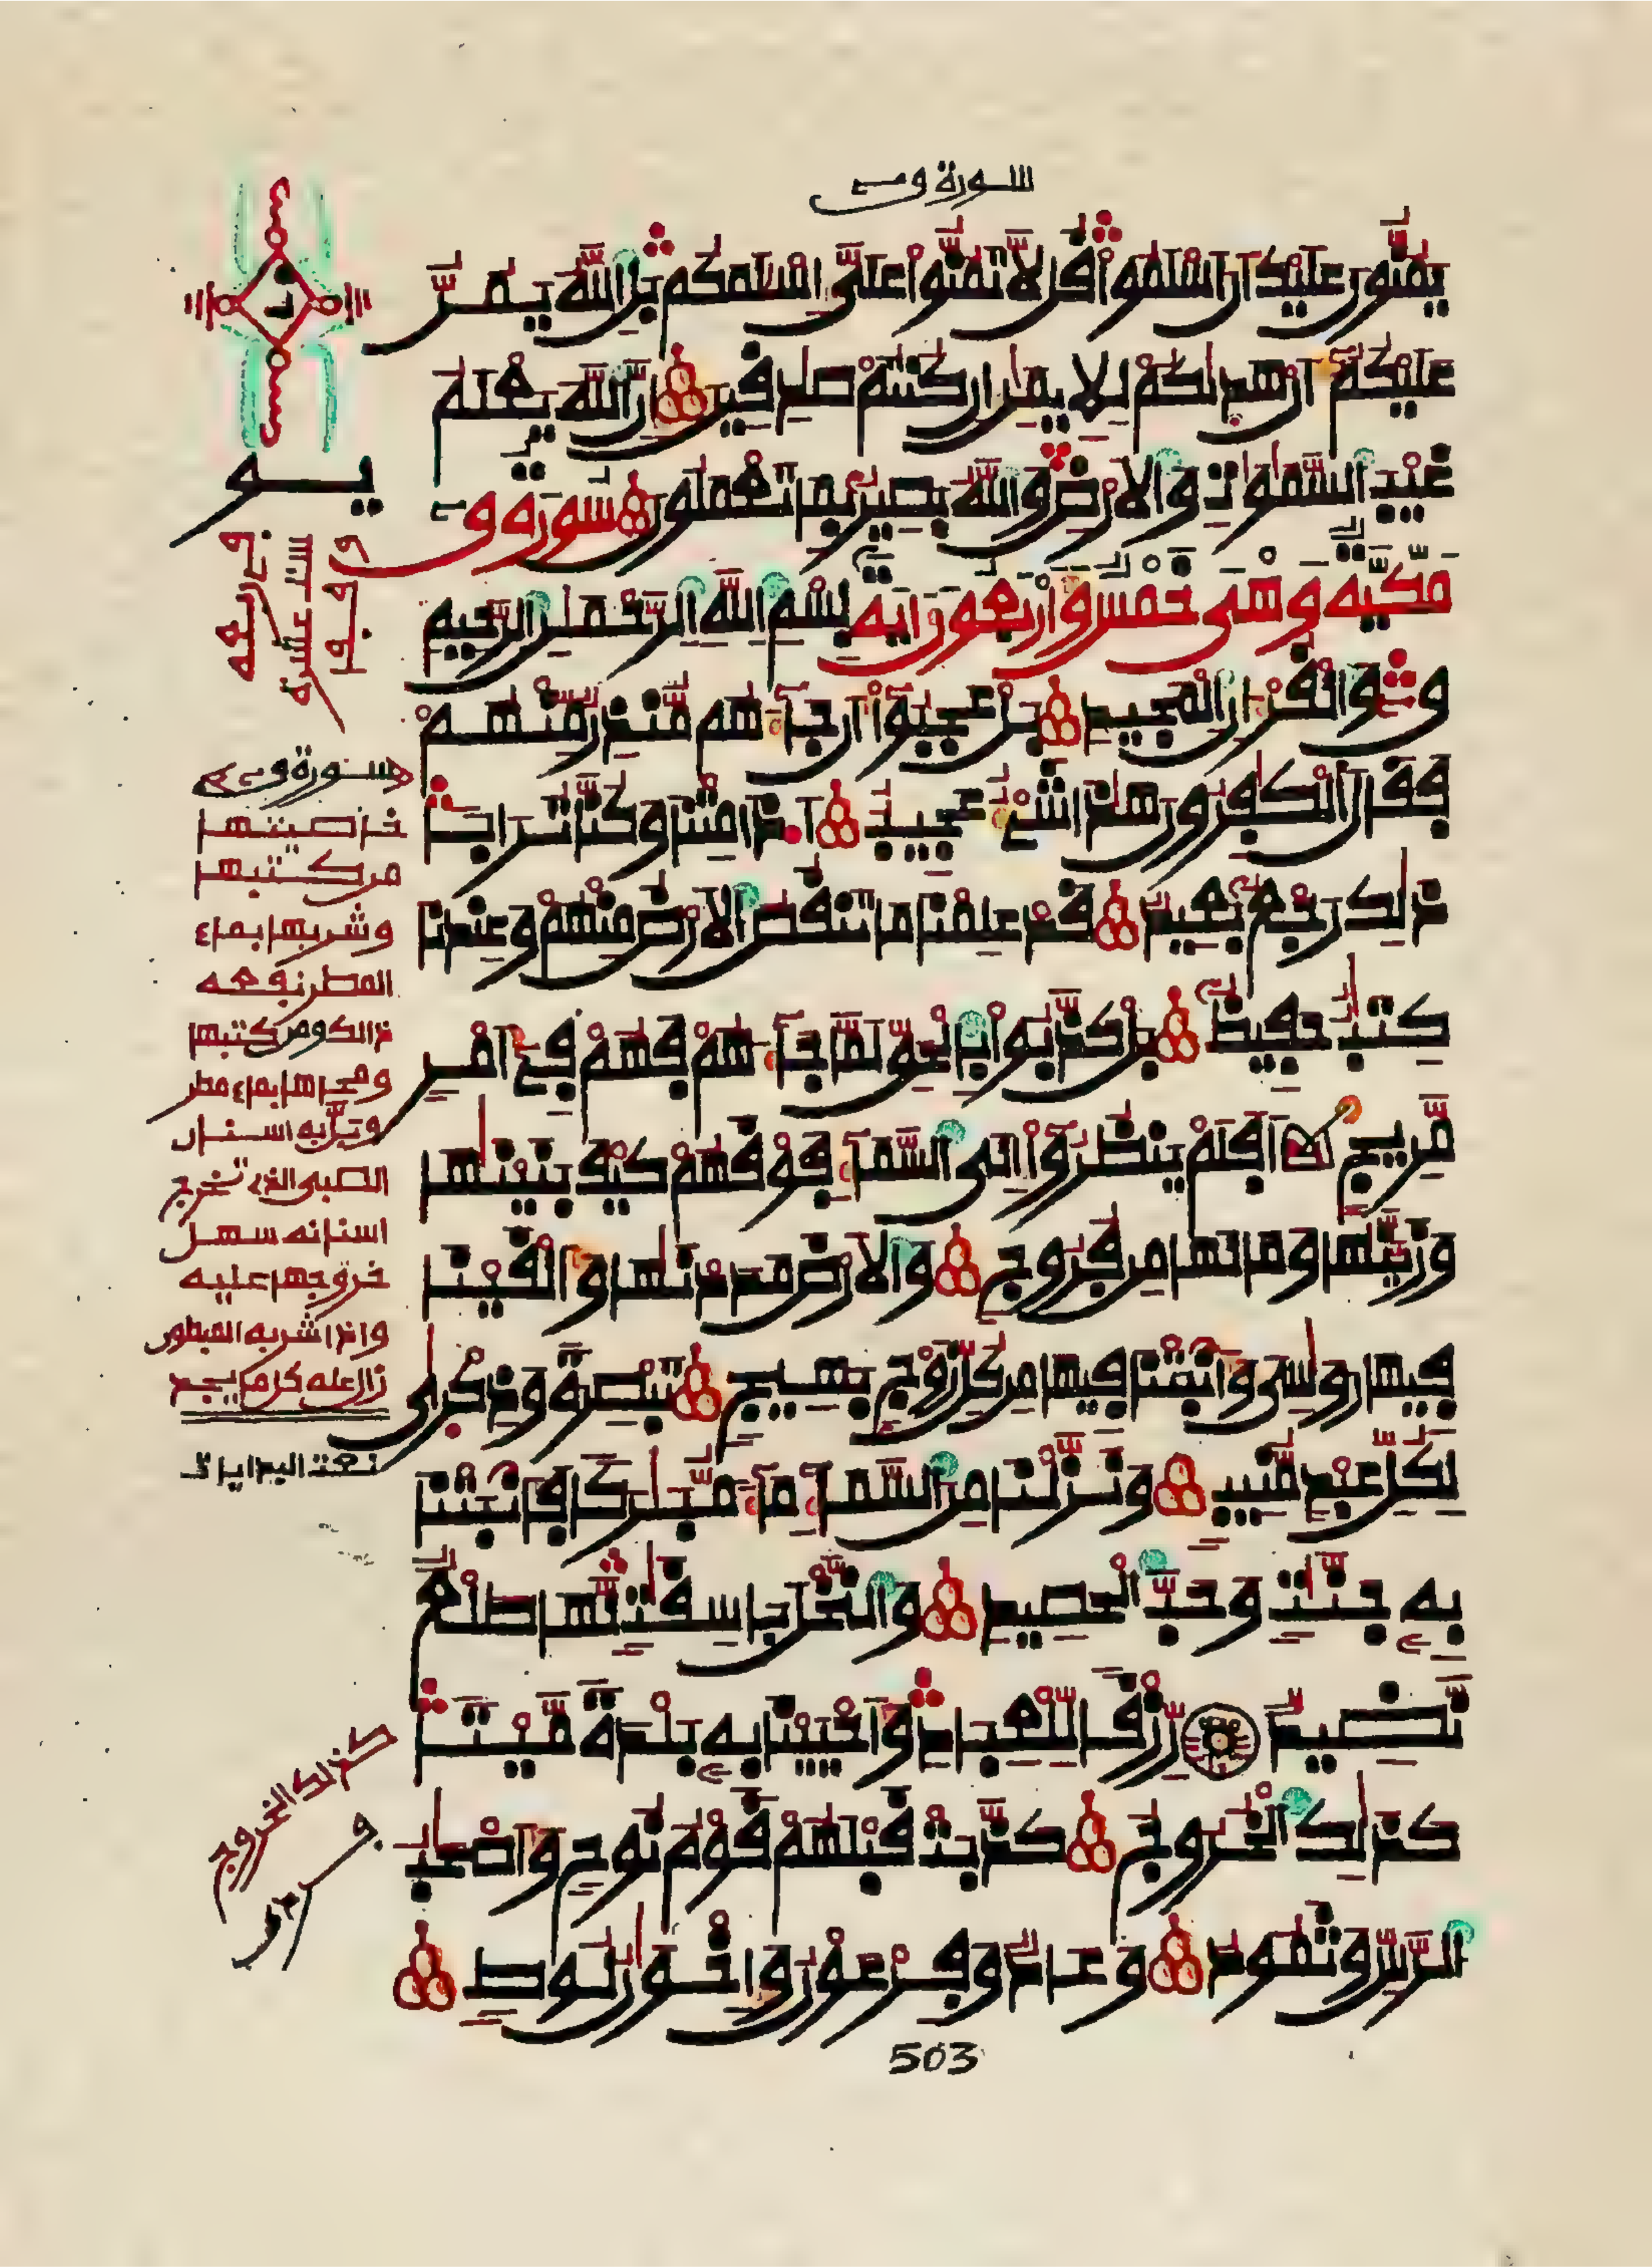 سورة ق
يمنون عليك أن اسلموا قل لا تمنوا على إسلمكم بل الله يمن
عليكم أن هديكم للايمن إن كنتم صدقين إن الله يعلم
غيب السموت والارض والله بصير بما تعملون سورة ق
مكية وهي خمس وأربعون ءاية بسم الله الرحمن الرحيم
ق والقرءان المجيد بل عجبوا أن جاءهم منذر منهم
فقال الكفرون هذا شيء عجيب أ.ذا متنا وكنا ترابا
ذلك رجع بعيد قد علمنا ما تنقص الارض منهم وعندنا
كتب حفيظ بل كذبوا بالحق لما جاءهم فهم في أمر
مريج أفلم ينظروا إلى السماء فوقهم كيف بنينها
وزينها وما لها من فروج والارض مددنها وألقينا
فيها روسي وأنبتنا فيها من كل زوج بهيج تبصرة وذكرى
لكل عبد منيب ونزلنا من السماء ماء مبركا فأنبتنا
به جنت وحب الحصيد والنخل باسقت لها طلع
نضيد رزقا للعباد وأحيينا به بلدة ميتا
كذلك الخروج كذبت قبلهم قوم نوح وأصحب
الرس وثمود وعاد وفرعون وإخون لوط
503
سورة ق
خاصيتها
من كتبها
وشربها بماء
المطر نفعه
ذالك ومن كتبها
ومحاها بماء مطر
وبل به اسنان
الصبي الذي تخرج
اسنانه سهل
خروجها عليه
واذا شربه المبطون
زال عنه كل ما يجد
كذالك الخروج